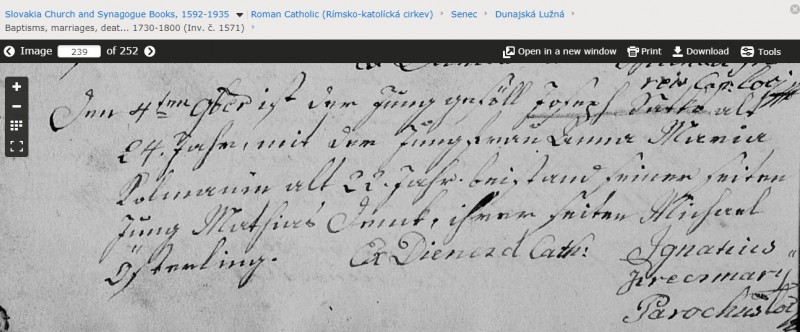 Slovakia Church and Synagogue Books, 1592-1935 Roman Catholic (Rímsko-katolícká cirkev) Senec Dunajská Lužná
Baptisms, marriages, deat... 1730-1800 (Inv. č. 1571)
Image 239 of 252 Open in a new window Print Download Tools
Den 4ten 9ber ist der Jung gesöll Joseph alt
24. Jahr, mit der Jungfrau Anna Maria
Kolmanin alt 22. Jahr. beistand seiner seiten
Jung Mathias ihrer seiten Michael
Österling. Ex Dienerd Cath: Ignatius
Parochus